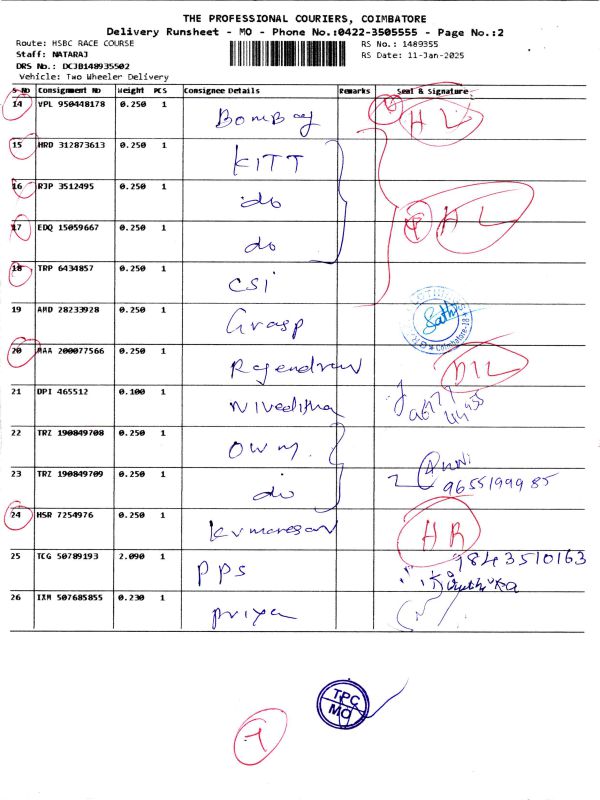 THE PROFESSIONAL COURIERS, COIMBATORE
Delivery Runsheet - MO - Phone No.:0422-3505555 - Page No.:2
Route: HSBC RACE COURSE
RS No.: 1489355
Staff: NATARAJ
RS Date: 11-Jan-2025
DRS No.: DCJB148935502
Vehicle: Two Wheeler Delivery
S No Consignment No Weight PCS Consignee Details Remarks Seal & Signature
14 VPL 950448178 0.250 1 Bombay HL
15 HRD 312873613 0.250 1 KITT
16 RJP 3512495 0.250 1 do
17 EDQ 15059667 0.250 1 do HL
18 TRP 6434857 0.250 1 CSI
19 AMD 28233928 0.250 1 Grasp Coimbatore-18
20 MAA 200077566 0.250 1 Rajendran DIL
21 DPI 465512 0.100 1 Niveditha
22 TRZ 190849708 0.250 1 own.
23 TRZ 190849709 0.250 1 do 9655199985
24 HSR 7254976 0.250 1 Kumaresan HR
25 TCG 50789193 2.090 1 PPS 9843510163
26 IXM 507685855 0.230 1 Priya
TPC
MO